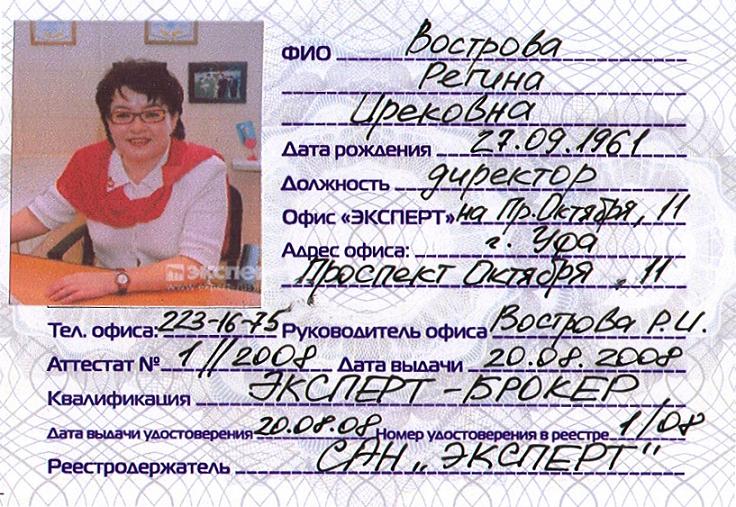 ФИО Вострова
Регина
Ирековна
Дата рождения 27.09.1961
Должность директор
Офис «ЭКСПЕРТ» на Пр.Октября, 11
Адрес офиса: г. Уфа
Проспект Октября, 11
эксперт
Тел. офиса: 223-16-75 Руководитель офиса Вострова Р.И.
Аттестат № 1//2008 Дата выдачи 20.08.2008
Квалификация ЭКСПЕРТ-БРОКЕР
Дата выдачи удостоверения 20.08.08 Номер удостоверения в реестре 1/08
Реестродержатель САН „ЭКСПЕРТ"